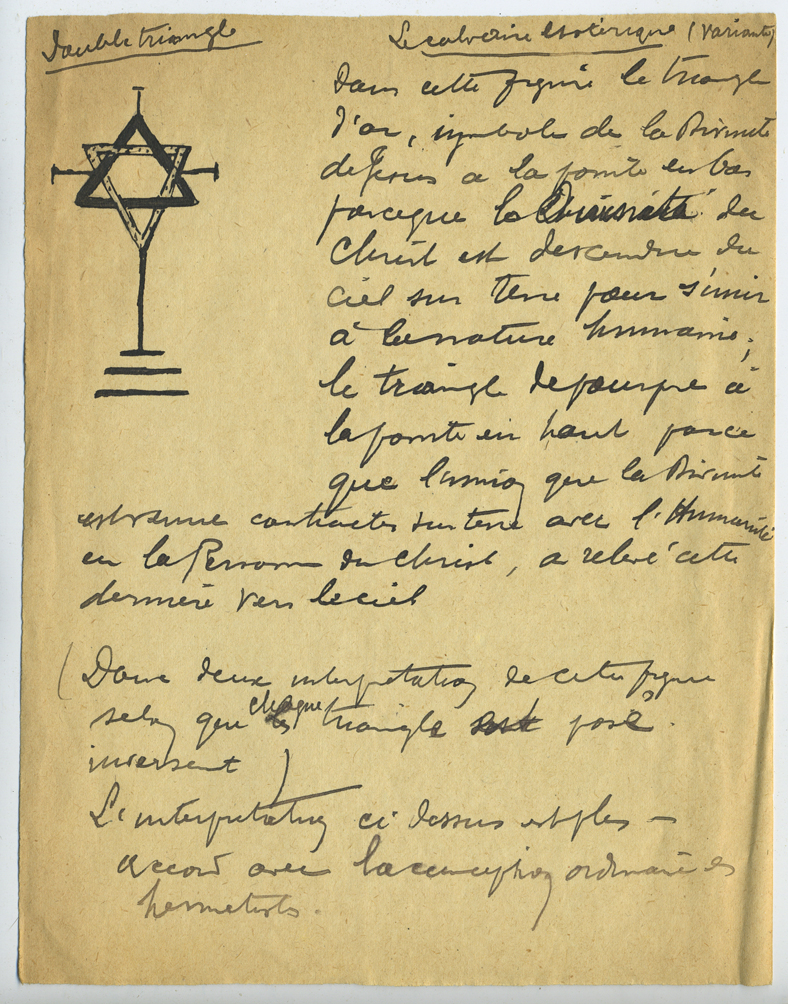 Double triangle
Le calvaire ésotérique (variante)
Dans cette figure le triangle
d'or, symbole de la Divinité
de Jésus a la pointe en bas
parceque la Divinité du
Christ est descendue du
ciel sur terre pour s'unir
à la nature humaine;
le triangle de pourpre a
la pointe en haut parce
que l'union que la Divinité
est venue contracter sur terre avec l'Humanité
en la Personne du Christ, a relevé cette
dernière vers le ciel
(Donc deux interprétation de cette figure
selon que chaque triangle est posé
inversent)
L'interprétation ci dessus est plus
accord avec la conception ordinaire des
hermetists.